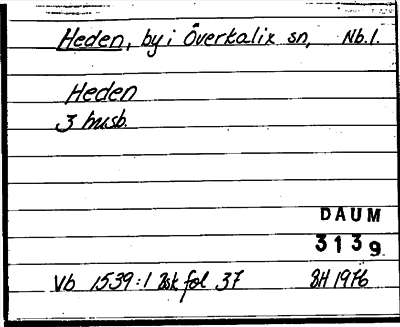 Heden, by i Överkalix sn, Nb.l.
Heden
3 husb.
DAUM
3139
Vb 1539:1 Bsk fol 37 SH 1976